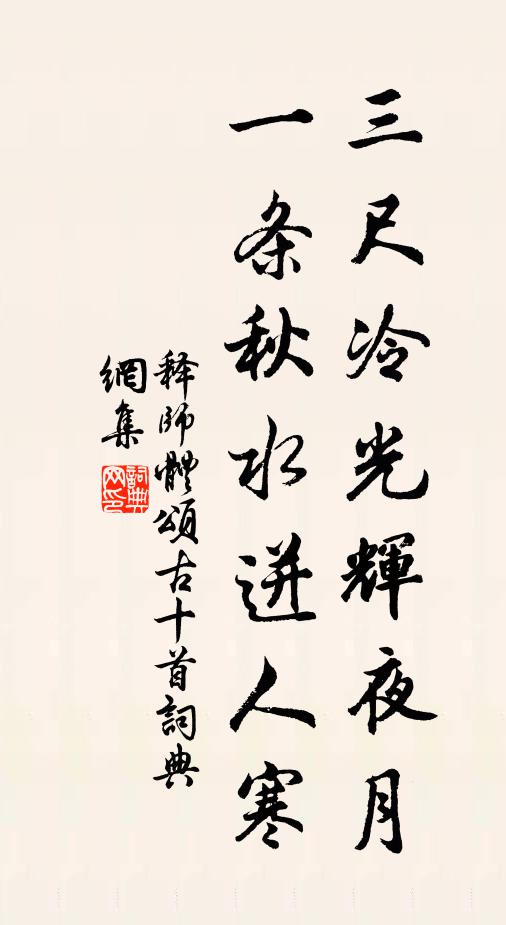 三尺冷光輝夜月
一条秋水迸人寒
释師體頌古十首詞典
網集
詞典
网印